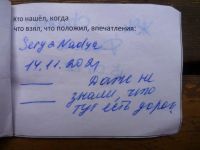 Кто нашёл, когда
что взял, что положил, впечатления:
Serg & Nadya
14.11.2021
Даже не
знали, что
тут есть дорога